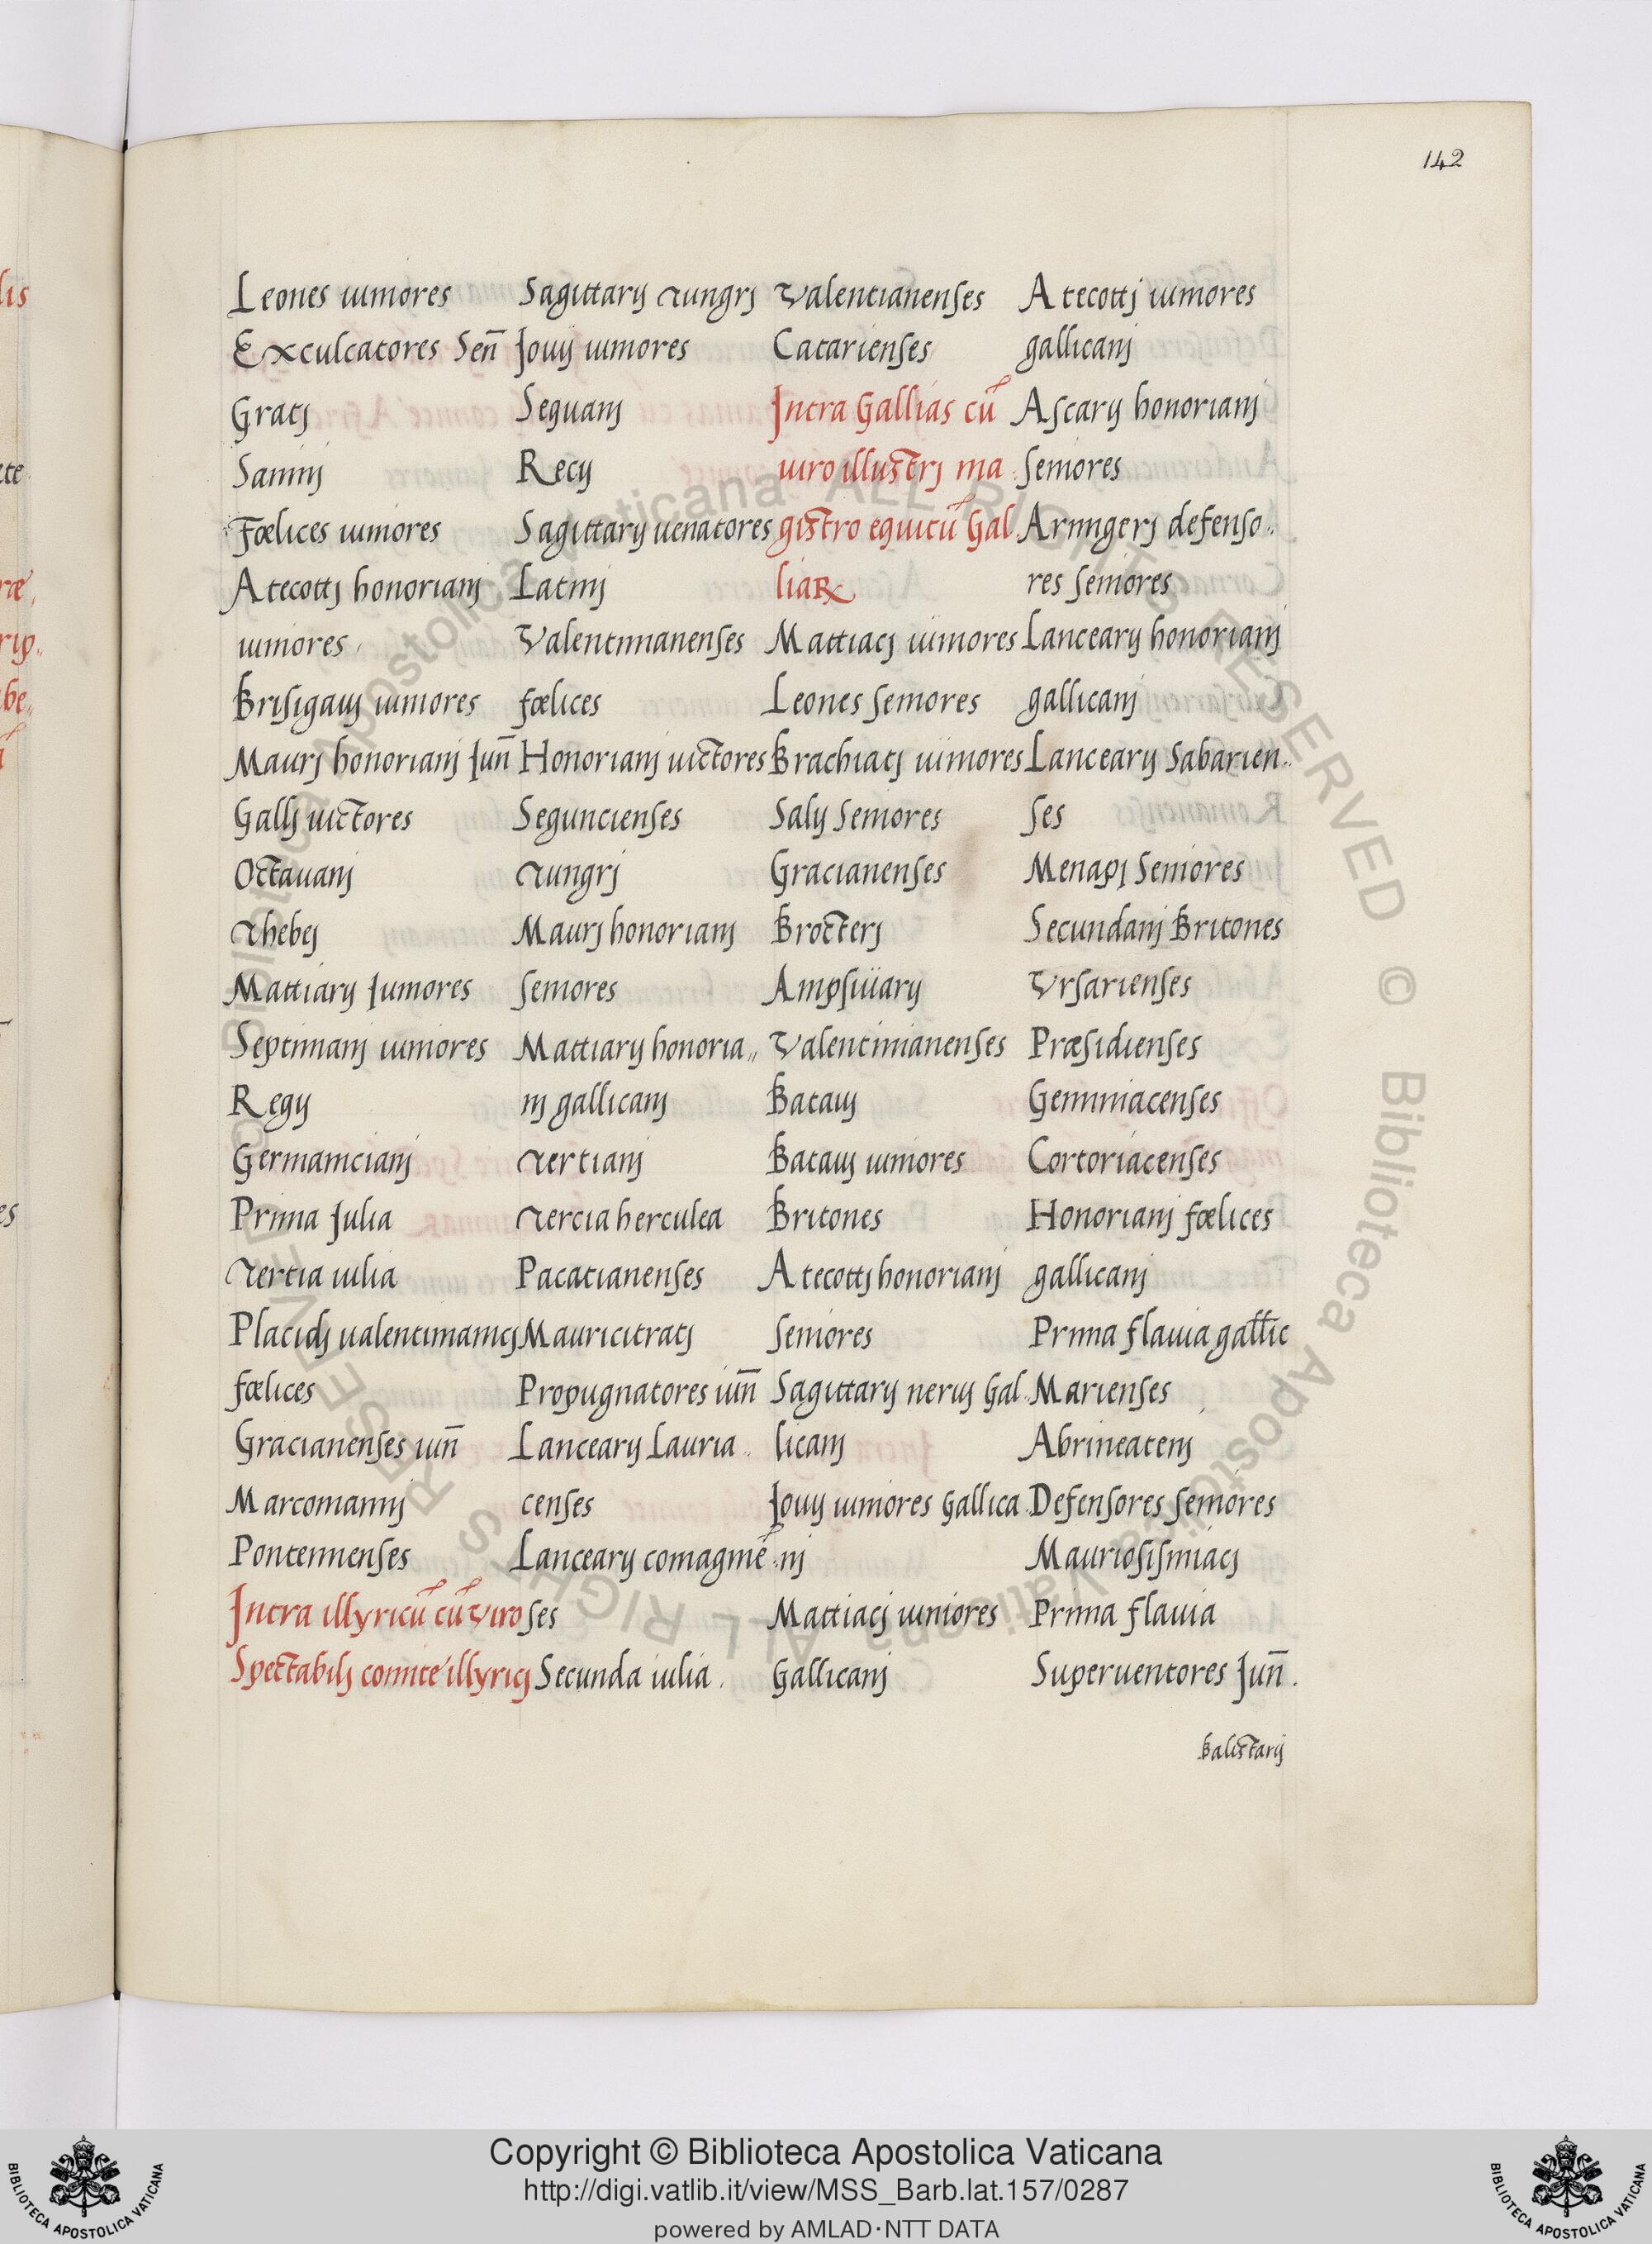 142
Leones iuniores
Exculcatores Sen̄
Gratj
Sainij
Fœlices iuniores
Atecottj honorianj
iuniores
Brisigauij iuniores
Maurj honorianj Jun̄
Gallj uictores
Octauanj
Thebej
Mattiarij Juniores
Septimanj iuniores
Regij
Germanicianj
Prima Julia
Tertia iulia
Placidj ualentinianicj
fœlices
Gracianenses iun̄
Marcomannj
Pontennenses
Intra illyricū cū Viro
Spectabilj comite illyricj
Sagittarij Tungrj
Jouij iuniores
Sequanj
Recij
Sagittarij uenatores
Latinj
Valentinianenses
fœlices
Honorianj uictores
Seguncienses
Tungrj
Maurj honorianj
seniores
Mattiarij honoria„
nj gallicanj
Tertianj
Tercia herculea
Pacatianenses
Mauricitratj
Propugnatores iun̄
Lancearij Lauria„
censes
Lancearij comaginē„
ses
Secunda iulia.
Valentianenses
Catarienses
Intra Gallias cū
uiro illustrj ma„
gistro equitū Gal„
liaꝝ
Mattiacj iuniores
Leones seniores
Brachiatj iuniores
Salij Seniores
Gracianenses
Brocterj
Ampsiuarij
Valentinianenses
Batauij
Batauij iuniores
Britones
Atecottj honorianj
seniores
Sagittarij neruij Gal„
licanj
Jouij iuniores Gallica„
nj
Mattiacj iuniores
Gallicanj
Atecottj iuniores
gallicanj
Ascarij honorianj
seniores
Armigerj defenso„
res seniores
Lancearij honorianj
gallicanj
Lancearij Sabarien„
ses
Menapj Seniores
Secundanj Britones
Vrsarienses
Præsidienses
Geminiacenses
Cortoriacenses
Honorianj fœlices
gallicanj
Prima flauia gallic
Marienses
Abrincatenj
Defensores seniores
Mauriosismiacj
Prima flauia
Superuentores Jun̄.
balistarij
Copyright © Biblioteca Apostolica Vaticana
http://digi.vatlib.it/view/MSS_Barb.lat.157/0287
powered by AMLAD·NTT DATA